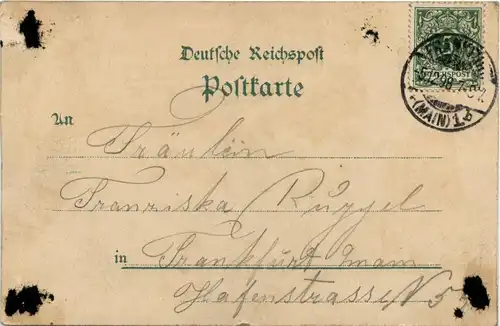 Deutsche Reichspost
Postkarte
FRANKFURT
REICHSPOST
(MAIN) 1.
An
Fräulein
Franziska Rüggel
in Frankfurt Main
Hafenstrasse N 5